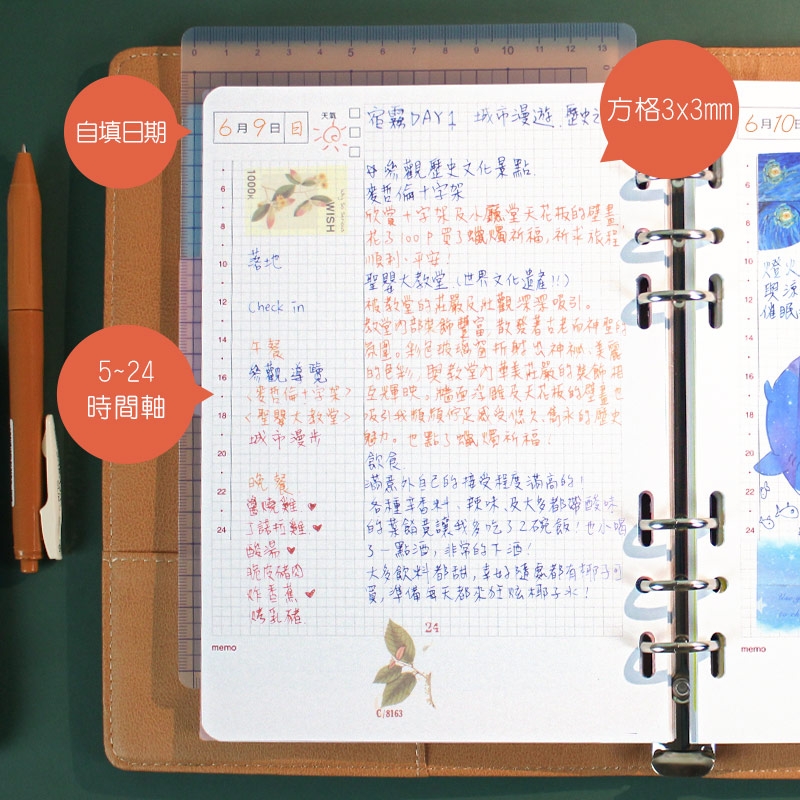 自填日期
方格3x3mm
5~24
時間軸
0 1 5 10 11 12 13
6月9日 日
天氣
宿霧DAY1 城市漫遊.歷史之
參觀歷史文化景點.
麥哲倫十字架
欣賞十字架及小廳堂天花板的壁畫
花了100P買了蠟燭祈福,祈求旅程
順利、平安!
聖嬰大教堂(世界文化遺產!!)
被教堂的莊嚴及壯觀深深吸引。
教堂內部裝飾豐富,散發著古老而神聖的
氛圍。彩色玻璃窗折射出神祕、美麗
的色彩,與教堂內華美莊嚴的裝飾相
互輝映。牆面浮雕及天花板的壁畫也
吸引我頻頻佇足感受悠久、雋永的歷史
魅力。也點了蠟燭祈福!
飲食
滿意外自己的接受程度滿高的!
各種辛香料、辣味及大多都帶酸味
的菜餚竟讓我多吃了2碗飯!也小喝
了一點酒,非常的下酒!
大多飲料都甜,幸好隨處都有椰子可
買,準備每天都來狂炫椰子水!
4
6
8
10
12
14
16
18
20
22
24
1000K
WISH
落地
Check in
午餐
參觀導覽
<麥哲倫十字架>
<聖嬰大教堂>
城市漫步
晚餐
薑燒雞
丁諾拉雞
酸湯
脆皮豬肉
炸香蕉
烤乳豬
24
C/8163
memo
6月10日
4
6
8
10
12
14
16
18
20
22
24
燈火
喫涼
催眠
memo